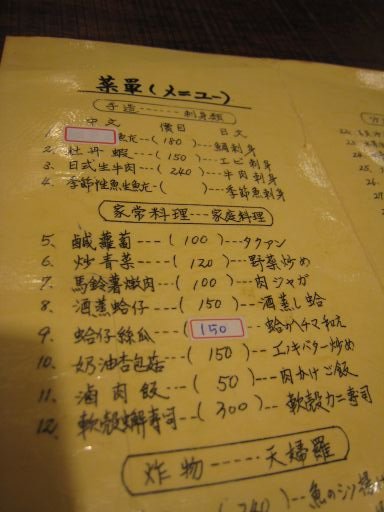 菜單(メニュー)
手造------刺身類
中文 價目 日文
魚克--(180)--鯛刺身
2. 牡丹蝦--(150)--エビ刺身
3. 日式生牛肉--(240)--牛肉刺身
4. 季節性魚生魚克--( )--季節魚刺身
家常料理---家庭料理
5、鹹蘿蔔---(100)---タクアン
6、炒青菜---(120)---野菜炒め
7、馬鈴薯燉肉---(100)---肉ジャガ
8、酒蒸蛤仔---(150)---酒蒸し蛤
9、蛤仔絲瓜---(150)---蛤がヘチマ
10、奶油杏包菇---(150)---エノキバター炒め
11、滷肉飯---(50)---肉かけご飯
12、軟殼蟳壽司---(300)---軟殼カニ壽司
炸物-----天婦羅
(240)---魚のシソ揚げ
22.
24.
25.
26
27